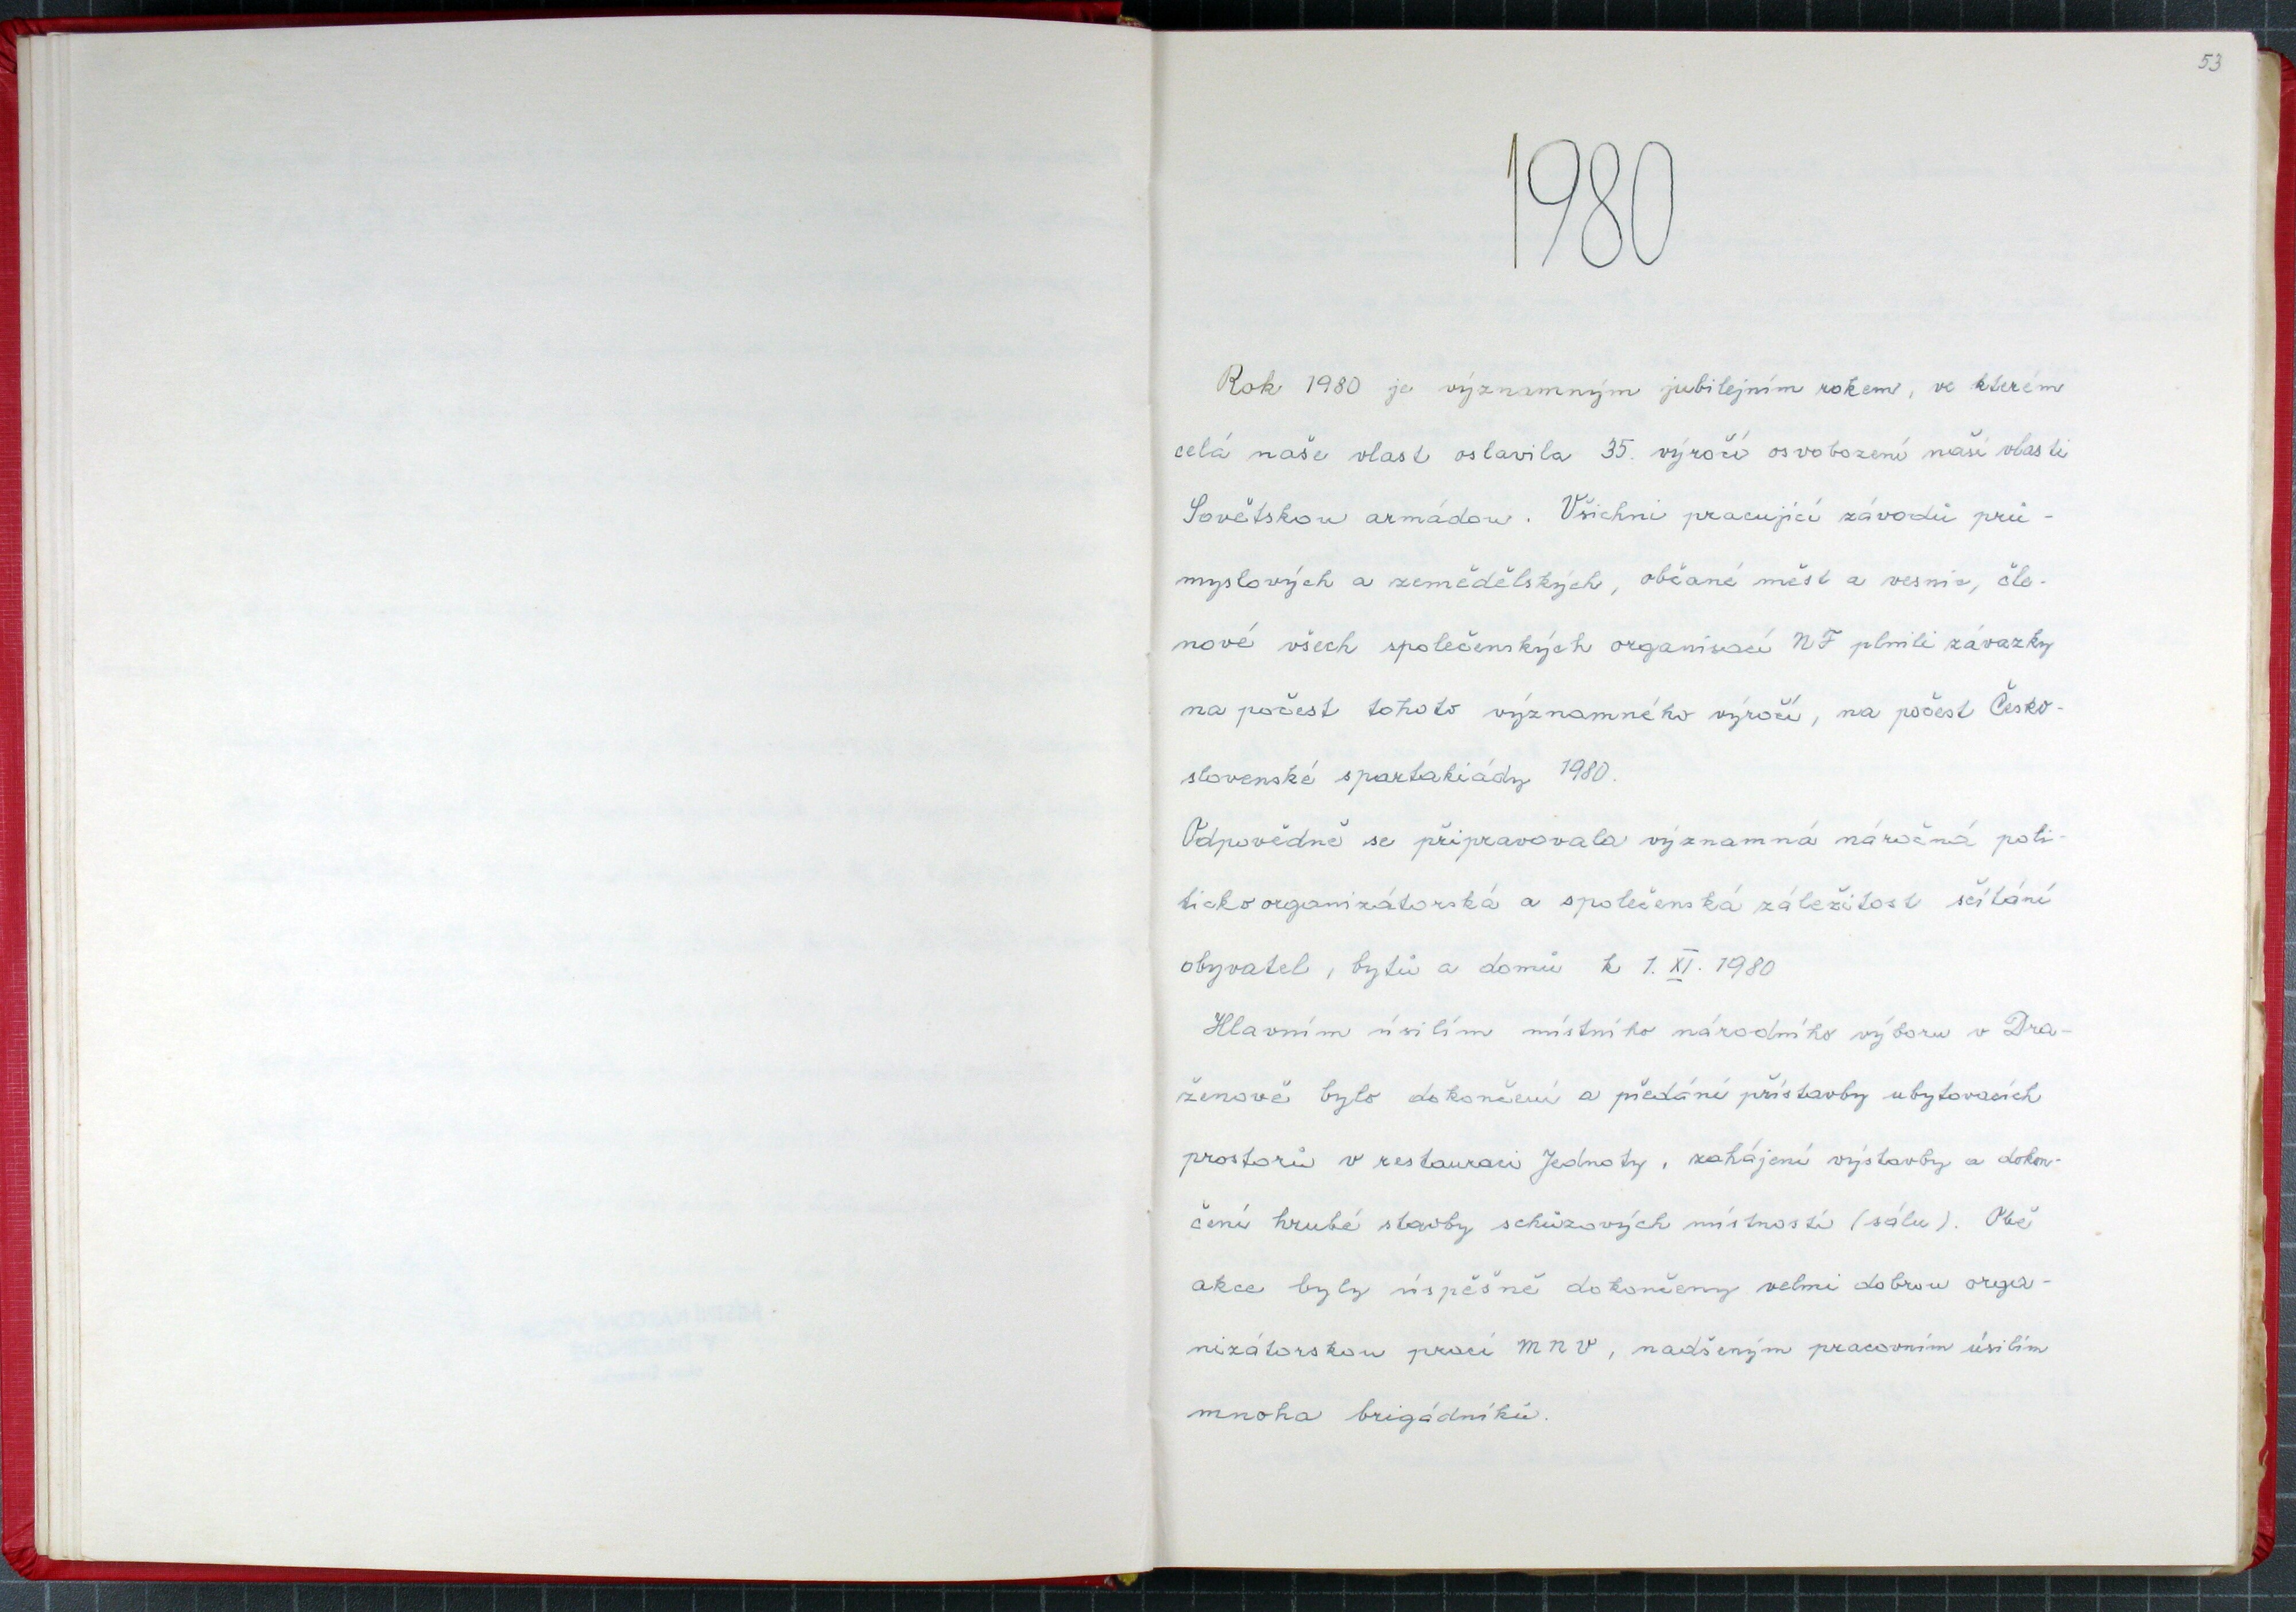 53
1980
Rok 1980 je významným jubilejním rokem, ve kterém
celá naše vlast oslavila 35. výročí osvobození naší vlasti
Sovětskou armádou. Všichni pracující závodů prů-
myslových a zemědělských, občané měst a vesnic, čle-
nové všech společenských organisací NF plnili závazky
na počest tohoto významného výročí, na počest Česko-
slovenské spartakiády 1980.
Odpovědně se připravovala významná náročná poli-
ticko organizátorská a společenská záležitost sčítání
obyvatel, bytů a domů k 1. XI. 1980
Hlavním úsilím místního národního výboru v Dra-
ženově bylo dokončení a předání přístavby ubytovacích
prostorů v restauraci Jednoty, zahájení výstavby a dokon-
čení hrubé stavby schůzových místností (sálu). Obě
akce byly úspěšně dokončeny velmi dobrou orga-
nizátorskou prací MNV, nadšeným pracovním úsilím
mnoha brigádníků.